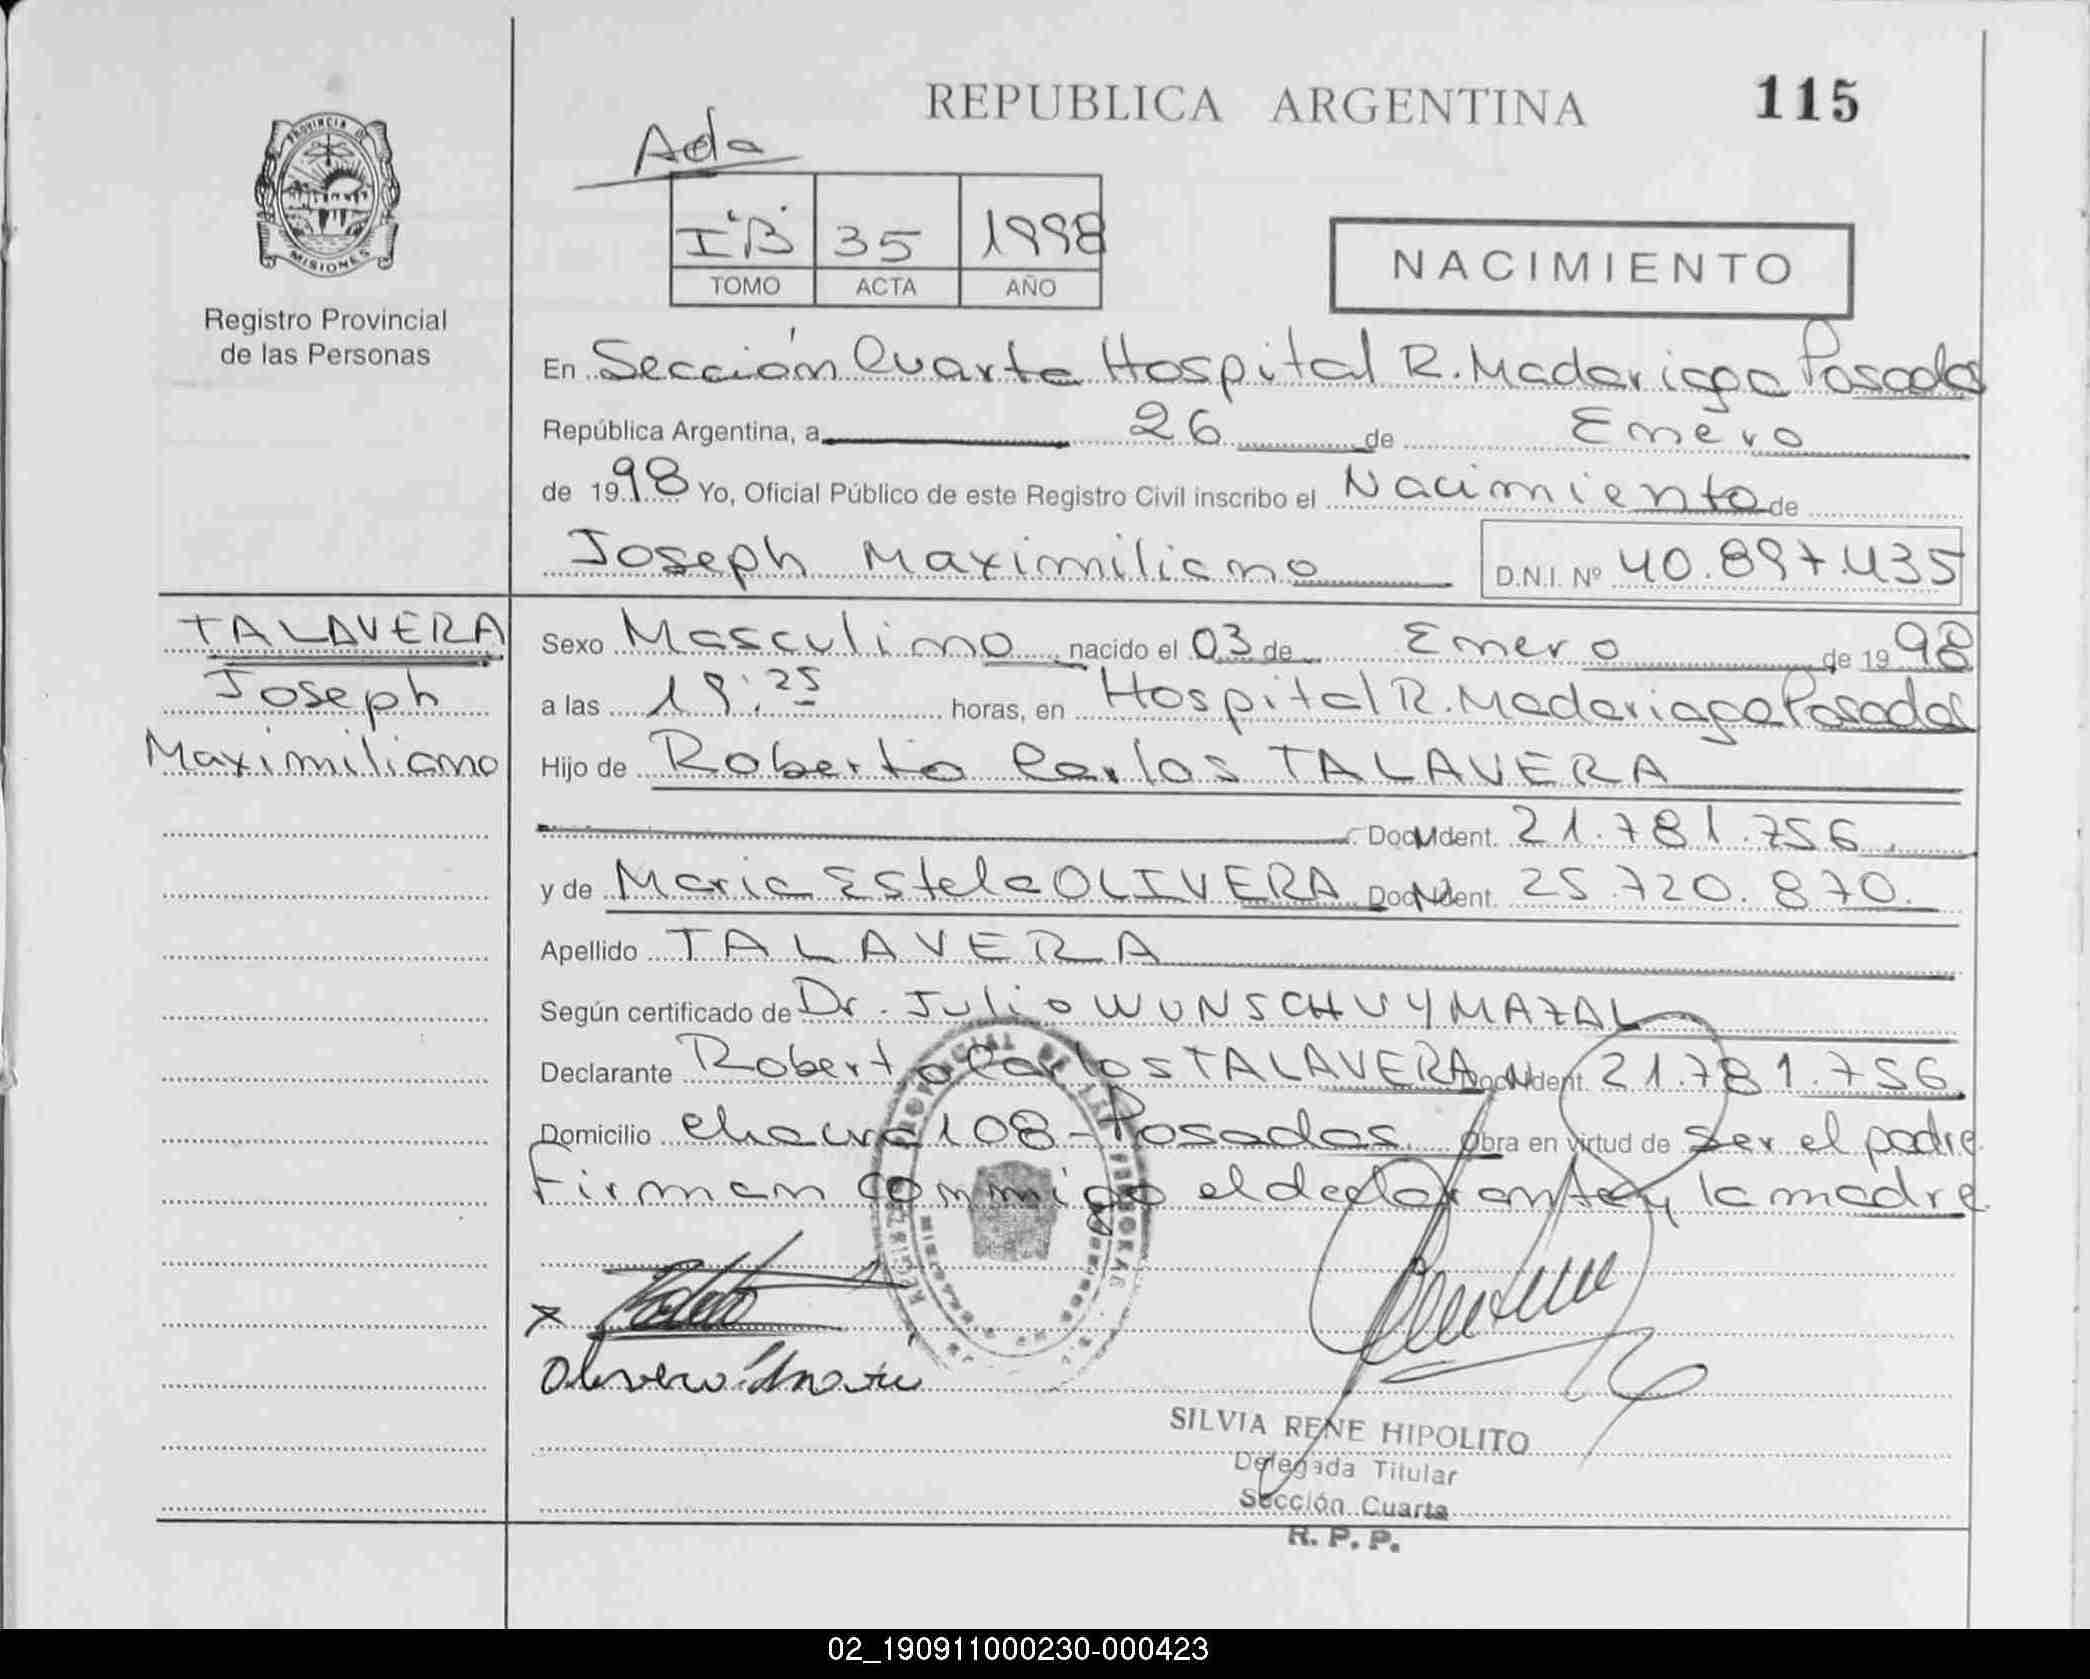 REPUBLICA ARGENTINA 115
Ada
PROVINCIA DE
MISIONES
I "B" 35 1998
TOMO ACTA AÑO
NACIMIENTO
Registro Provincial
de las Personas
En Sección Cuarta Hospital R. Madariaga Posadas
República Argentina, a 26 de Enero
de 1998 Yo, Oficial Público de este Registro Civil inscribo el Nacimiento de
Joseph Maximiliano D.N.I. Nº 40.897.435
TALAVERA
Joseph
Maximiliano
Sexo Masculino nacido el 03 de Enero de 1998
a las 19:25 horas, en Hospital R. Madariaga Posadas
Hijo de Roberto Carlos TALAVERA
Doc. Ident. 21.781.756.
y de Maria Estela OLIVERA Doc. Ident. 25.720.870.
Apellido TALAVERA
Según certificado de Dr. Julio WUNSCH UYMAZAL
Declarante Roberto Carlos TALAVERA Doc. Ident. 21.781.756
Domicilio chacra 108 - Posadas Obra en virtud de ser el padre
Firman conmigo el declarante y la madre
x
SILVIA RENE HIPOLITO
Delegada Titular
Sección Cuarta
R. P. P.
02_190911000230-000423